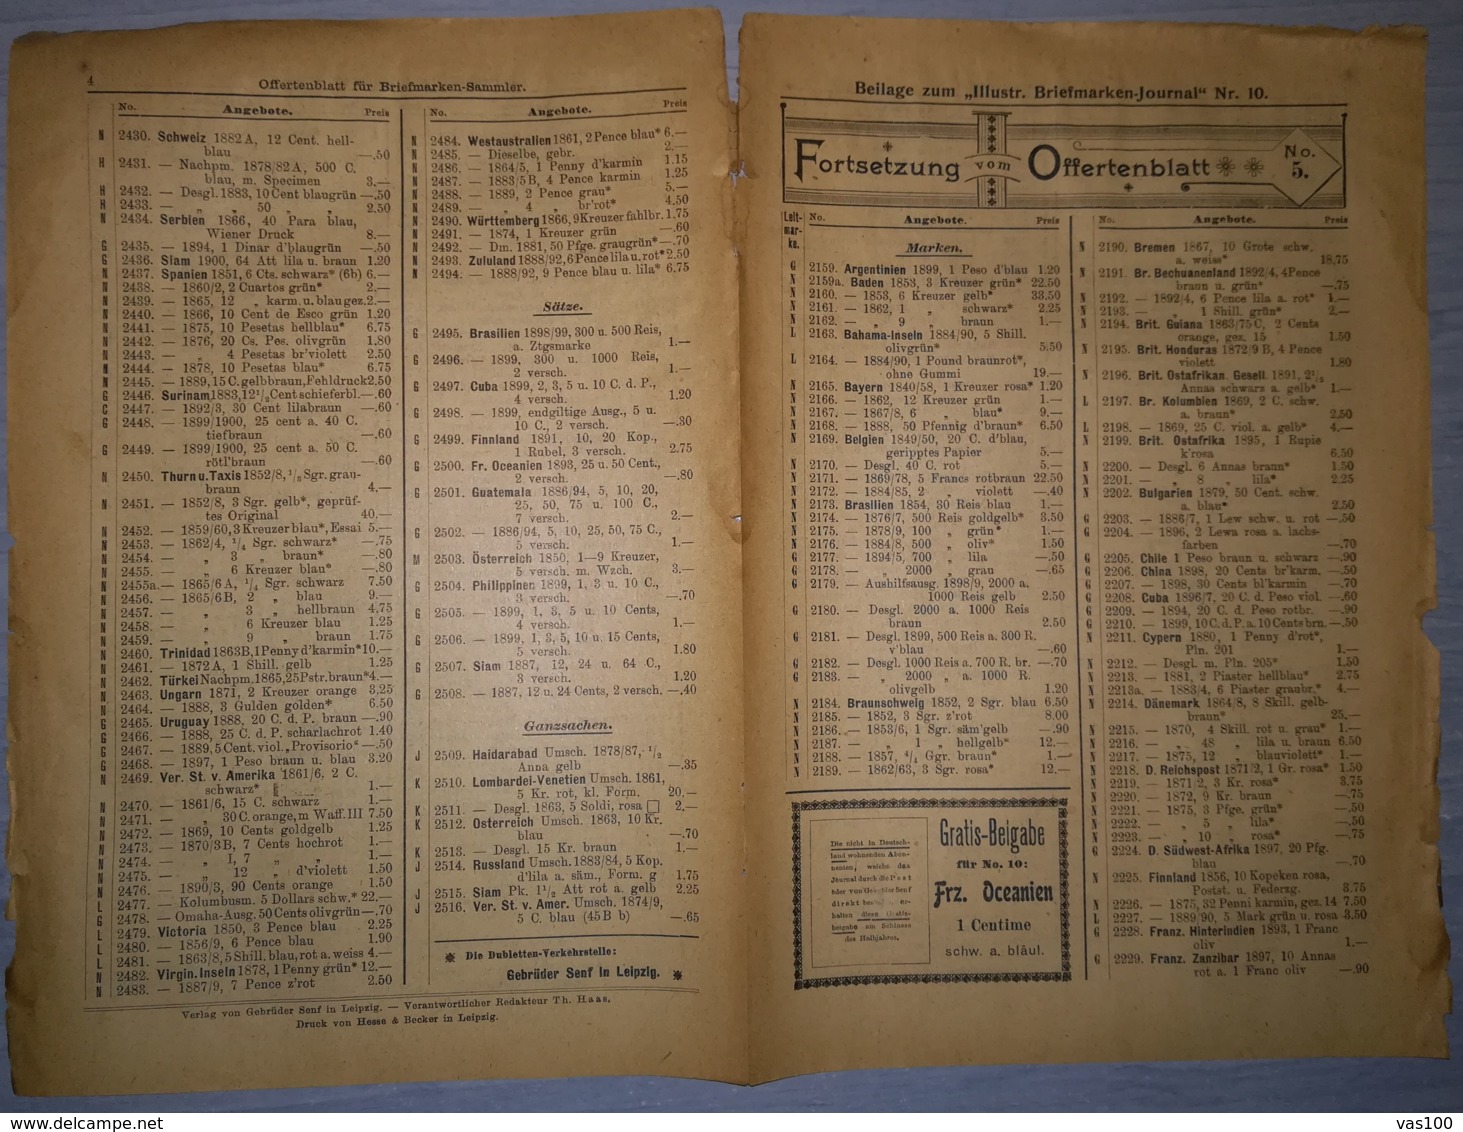 4
Offertenblatt für Briefmarken-Sammler.
No. Angebote. Preis
N 2430. Schweiz 1882 A, 12 Cent. hell-
blau —.50
H 2431. — Nachpm. 1878/82 A, 500 C.
blau, m. Specimen 3.—
H 2432. — Desgl. 1883, 10 Cent blaugrün —.50
H 2433. — „ „ 50 „ „ 2.50
N 2434. Serbien 1866, 40 Para blau,
Wiener Druck 8.—
G 2435. — 1894, 1 Dinar d'blaugrün —.50
G 2436. Siam 1900, 64 Att lila u. braun 1.20
N 2437. Spanien 1851, 6 Cts. schwarz* (6b) 6.—
N 2438. — 1860/2, 2 Cuartos grün* 2.—
N 2439. — 1865, 12 „ karm. u. blau gez. 2.—
N 2440. — 1866, 10 Cent de Esco grün 1.20
N 2441. — 1875, 10 Pesetas hellblau* 6.75
N 2442. — 1876, 20 Cs. Pes. olivgrün 1.80
N 2443. — „ 4 Pesetas br'violett 2.50
N 2444. — 1878, 10 Pesetas blau* 6.75
N 2445. — 1889, 15 C. gelbbraun, Fehldruck 2.50
G 2446. Surinam 1883, 12½ Cent schieferbl. —.60
C 2447. — 1892/3, 30 Cent lilabraun —.60
G 2448. — 1899/1900, 25 cent a. 40 C.
tiefbraun —.60
G 2449. — 1899/1900, 25 cent a. 50 C.
rötl'braun —.60
N 2450. Thurn u. Taxis 1852/8, ½ Sgr. grau-
braun 4.—
N 2451. — 1852/8, 3 Sgr. gelb*, geprüf-
tes Original 40.—
N 2452. — 1859/60, 3 Kreuzer blau*, Essai 5.—
N 2453. — 1862/4, ¼ Sgr. schwarz* —.75
N 2454. — „ 3 „ braun* —.80
N 2455. — „ 6 Kreuzer blau* —.80
N 2455a. — 1865/6 A, ¼ Sgr. schwarz 7.50
N 2456. — 1865/6 B, 2 „ blau 9.—
N 2457. — „ 3 „ hellbraun 4.75
N 2458. — „ 6 Kreuzer blau 1.25
N 2459. — „ 9 „ braun 1.75
N 2460. Trinidad 1863 B, 1 Penny d'karmin* 10.—
N 2461. — 1872 A, 1 Shill. gelb 1.25
N 2462. Türkei Nachpm. 1865, 25 Pstr. braun* 4.—
N 2463. Ungarn 1871, 2 Kreuzer orange 3.25
N 2464. — 1888, 3 Gulden golden* 6.50
G 2465. Uruguay 1888, 20 C. d. P. braun —.90
G 2466. — 1888, 25 C. d. P. scharlachrot 1.40
G 2467. — 1889, 5 Cent. viol. „Provisorio“ —.50
G 2468. — 1897, 1 Peso braun u. blau 3.20
N 2469. Ver. St. v. Amerika 1861/6, 2 C.
schwarz* 1.—
N 2470. — 1861/6, 15 C. schwarz 1.—
N 2471. — „ 30 C. orange, m Waff. III 7.50
N 2472. — 1869, 10 Cents goldgelb 1.25
N 2473. — 1870/3 B, 7 Cents hochrot 1.—
N 2474. — „ I, 7 „ „ 1.—
N 2475. — „ 12 „ d'violett 1.50
N 2476. — 1890/3, 90 Cents orange 1.50
L 2477. — Kolumbusm. 5 Dollars schw.* 22.—
G 2478. — Omaha-Ausg. 50 Cents olivgrün —.70
L 2479. Victoria 1850, 3 Pence blau 2.25
L 2480. — 1856/9, 6 Pence blau 1.90
L 2481. — 1863/8, 5 Shill. blau, rot a. weiss 4.—
N 2482. Virgin. Inseln 1878, 1 Penny grün* 12.—
N 2483. — 1887/9, 7 Pence z'rot 2.50
No. Angebote. Preis
N 2484. Westaustralien 1861, 2 Pence blau* 6.—
N 2485. — Dieselbe, gebr. 2.—
N 2486. — 1864/5, 1 Penny d'karmin 1.15
N 2487. — 1883/5 B, 4 Pence karmin 1.25
N 2488. — 1889, 2 Pence grau* 5.—
N 2489. — „ 4 „ br'rot* 4.50
N 2490. Württemberg 1866, 9 Kreuzer fahlbr. 1.75
N 2491. — 1874, 1 Kreuzer grün —.60
N 2492. — Dm. 1881, 50 Pfge. graugrün* —.70
N 2493. Zululand 1888/92, 6 Pence lila u. rot* 2.50
N 2494. — 1888/92, 9 Pence blau u. lila* 6.75
Sätze.
G 2495. Brasilien 1898/99, 300 u. 500 Reis,
a. Ztgsmarke 1.—
G 2496. — 1899, 300 u. 1000 Reis,
2 versch. 1.—
G 2497. Cuba 1899, 2, 3, 5 u. 10 C. d. P.,
4 versch. 1.20
G 2498. — 1899, endgiltige Ausg., 5 u.
10 C., 2 versch. —.30
G 2499. Finnland 1891, 10, 20 Kop.,
1 Rubel, 3 versch. 2.75
G 2500. Fr. Oceanien 1893, 25 u. 50 Cent.,
2 versch. —.80
G 2501. Guatemala 1886/94, 5, 10, 20,
25, 50, 75 u. 100 C.,
7 versch. 2.—
G 2502. — 1886/94, 5, 10, 25, 50, 75 C.,
5 versch. 1.—
M 2503. Österreich 1850, 1—9 Kreuzer,
5 versch. m. Wzch. 3.—
G 2504. Philippinen 1899, 1, 3 u. 10 C.,
3 versch. —.70
G 2505. — 1899, 1, 3, 5 u. 10 Cents,
4 versch. 1.—
G 2506. — 1899, 1, 3, 5, 10 u. 15 Cents,
5 versch. 1.80
G 2507. Siam 1887, 12, 24 u. 64 C.,
3 versch. 1.20
G 2508. — 1887, 12 u. 24 Cents, 2 versch. —.40
Ganzsachen.
J 2509. Haidarabad Umsch. 1878/87, ½
Anna gelb —.35
K 2510. Lombardei-Venetien Umsch. 1861,
5 Kr. rot, kl. Form. 20.—
K 2511. — Desgl. 1863, 5 Soldi, rosa □ 2.—
K 2512. Österreich Umsch. 1863, 10 Kr.
blau —.70
K 2513. — Desgl. 15 Kr. braun 1.—
J 2514. Russland Umsch. 1883/84, 5 Kop.
d'lila a. säm., Form. g 1.75
J 2515. Siam Pk. 1½ Att rot a. gelb 2.25
J 2516. Ver. St. v. Amer. Umsch. 1874/9,
5 C. blau (45 B b) —.65
Die Dubletten-Verkehrstelle:
Gebrüder Senf in Leipzig.
Verlag von Gebrüder Senf in Leipzig. — Verantwortlicher Redakteur Th. Haas.
Druck von Hesse & Becker in Leipzig.
Beilage zum „Illustr. Briefmarken-Journal“ Nr. 10.
Fortsetzung vom Offertenblatt No. 5.
Leit-mar-ke. No. Angebote. Preis
Marken.
G 2159. Argentinien 1899, 1 Peso d'blau 1.20
N 2159a. Baden 1853, 3 Kreuzer grün* 22.50
N 2160. — 1853, 6 Kreuzer gelb* 33.50
N 2161. — 1862, 1 „ schwarz* 2.25
N 2162. — „ 9 „ braun 1.—
L 2163. Bahama-Inseln 1884/90, 5 Shill.
olivgrün* 5.50
L 2164. — 1884/90, 1 Pound braunrot*,
ohne Gummi 19.—
N 2165. Bayern 1840/58, 1 Kreuzer rosa* 1.20
N 2166. — 1862, 12 Kreuzer grün 1.—
N 2167. — 1867/8, 6 „ blau* 9.—
N 2168. — 1888, 50 Pfennig d'braun* 6.50
N 2169. Belgien 1849/50, 20 C. d'blau,
geripptes Papier 5.—
N 2170. — Desgl. 40 C. rot 5.—
N 2171. — 1869/78, 5 Francs rotbraun 22.50
N 2172. — 1884/85, 2 „ violett —.40
N 2173. Brasilien 1854, 30 Reis blau 1.—
N 2174. — 1876/7, 500 Reis goldgelb* 3.50
N 2175. — 1878/9, 100 „ grün* 1.—
N 2176. — 1884/8, 500 „ oliv* 1.50
G 2177. — 1894/5, 700 „ lila —.50
G 2178. — „ 2000 „ grau —.65
G 2179. — Aushilfsausg. 1898/9, 2000 a.
1000 Reis gelb 2.50
G 2180. — Desgl. 2000 a. 1000 Reis
braun 2.50
G 2181. — Desgl. 1899, 500 Reis a. 300 R.
v'blau —.60
G 2182. — Desgl. 1000 Reis a. 700 R. br. —.70
G 2183. — „ 2000 „ a. 1000 R.
olivgelb 1.20
N 2184. Braunschweig 1852, 2 Sgr. blau 6.50
N 2185. — 1852, 3 Sgr. z'rot 8.00
N 2186. — 1853/6, 1 Sgr. säm'gelb —.90
N 2187. — „ 1 „ hellgelb* 12.—
N 2188. — 1857, ¼ Ggr. braun* 1.—
N 2189. — 1862/63, 3 Sgr. rosa* 12.—
Die nicht in Deutsch-
land wohnenden Abon-
nenten, welche das
Journal durch die Post
oder von Gebrüder Senf
direkt er-
halten diese Gratis-
beigabe am Schlusse
des Halbjahres.
Gratis-Beigabe
für No. 10:
Frz. Oceanien
1 Centime
schw. a. bläul.
No. Angebote. Preis
N 2190. Bremen 1867, 10 Grote schw.
a. weiss* 18.75
N 2191. Br. Bechuanenland 1892/4, 4 Pence
braun u. grün* —.75
N 2192. — 1892/4, 6 Pence lila a. rot* 1.—
N 2193. — „ 1 Shill. grün* 2.—
N 2194. Brit. Guiana 1863/75 C, 2 Cents
orange, gez. 15 1.50
N 2195. Brit. Honduras 1872/9 B, 4 Pence
violett 1.80
N 2196. Brit. Ostafrikan. Gesell. 1891, 2½
Annas schwarz a. gelb* 1.—
L 2197. Br. Kolumbien 1869, 2 C. schw.
a. braun* 2.50
L 2198. — 1869, 25 C. viol. a. gelb* 4.—
N 2199. Brit. Ostafrika 1895, 1 Rupie
k'rosa 6.50
N 2200. — Desgl. 6 Annas braun* 1.50
N 2201. — „ 8 „ lila* 2.25
N 2202. Bulgarien 1879, 50 Cent. schw.
a. blau* 2.50
G 2203. — 1886/7, 1 Lew schw. u. rot —.50
G 2204. — 1896, 2 Lewa rosa a. lachs-
farben —.70
G 2205. Chile 1 Peso braun u. schwarz —.90
G 2206. China 1898, 20 Cents br'karm. —.50
G 2207. — 1898, 30 Cents bl'karmin —.70
G 2208. Cuba 1896/7, 20 C. d. Peso viol. —.60
G 2209. — 1894, 20 C. d. Peso rotbr. —.90
G 2210. — 1899, 10 C. d. P. a. 10 Cents brn. —.50
N 2211. Cypern 1880, 1 Penny d'rot*,
Pln. 201 1.—
N 2212. — Desgl. m. Pln. 205* 1.50
N 2213. — 1881, 2 Piaster hellblau* 2.75
N 2213a. — 1883/4, 6 Piaster graubr.* 4.—
N 2214. Dänemark 1864/8, 8 Skill. gelb-
braun* 25.—
N 2215. — 1870, 4 Skill. rot u. grau* 1.—
N 2216. — „ 48 „ lila u. braun 6.50
N 2217. — 1875, 12 „ blauviolett* 1.—
N 2218. D. Reichspost 1871/2, 1 Gr. rosa* 1.50
N 2219. — 1871/2, 3 Kr. rosa* 3.75
N 2220. — 1872, 9 Kr. braun —.75
N 2221. — 1875, 3 Pfge. grün* —.50
N 2222. — „ 5 „ lila* —.50
N 2223. — „ 10 „ rosa* —.75
G 2224. D. Südwest-Afrika 1897, 20 Pfg.
blau —.70
N 2225. Finnland 1856, 10 Kopeken rosa,
Postst. u. Federzg. 3.75
N 2226. — 1875, 32 Penni karmin, gez. 14 7.50
L 2227. — 1889/90, 5 Mark grün u. rosa 3.50
G 2228. Franz. Hinterindien 1893, 1 Franc
oliv 1.—
G 2229. Franz. Zanzibar 1897, 10 Annas
rot a. 1 Franc oliv —.90
vas100